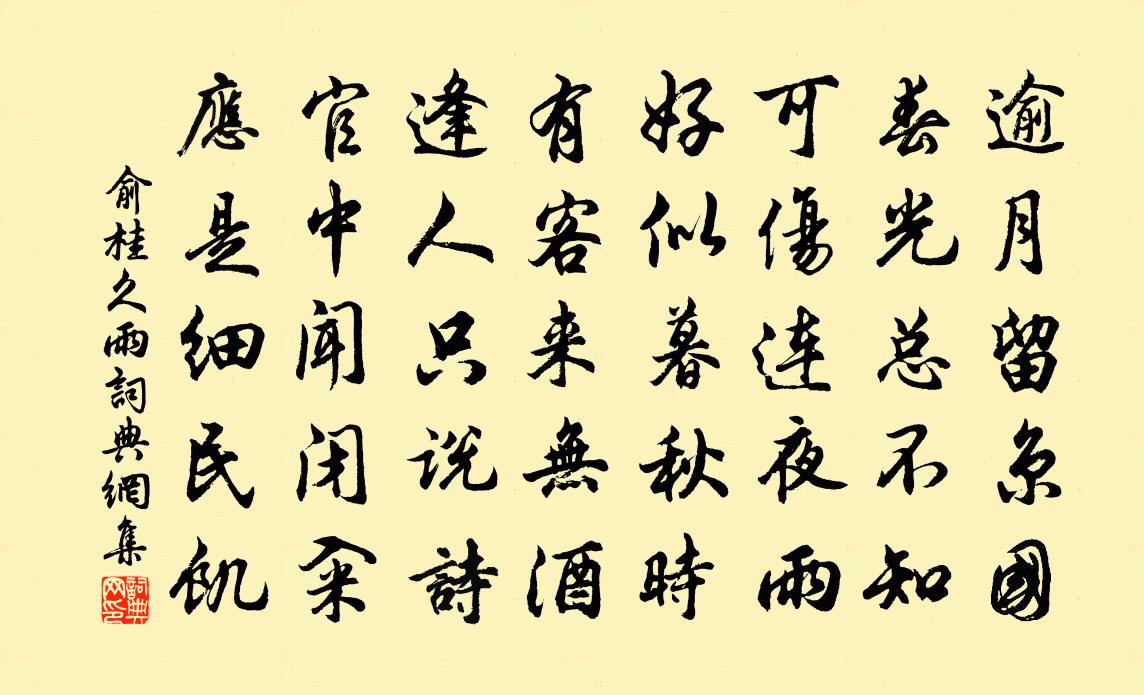 逾月留京國
春光总不知
可傷連夜雨
好似暮秋時
有客来無酒
逢人只説詩
官中聞闭籴
應是细民飢
俞桂久雨詞典網集
詞典网印